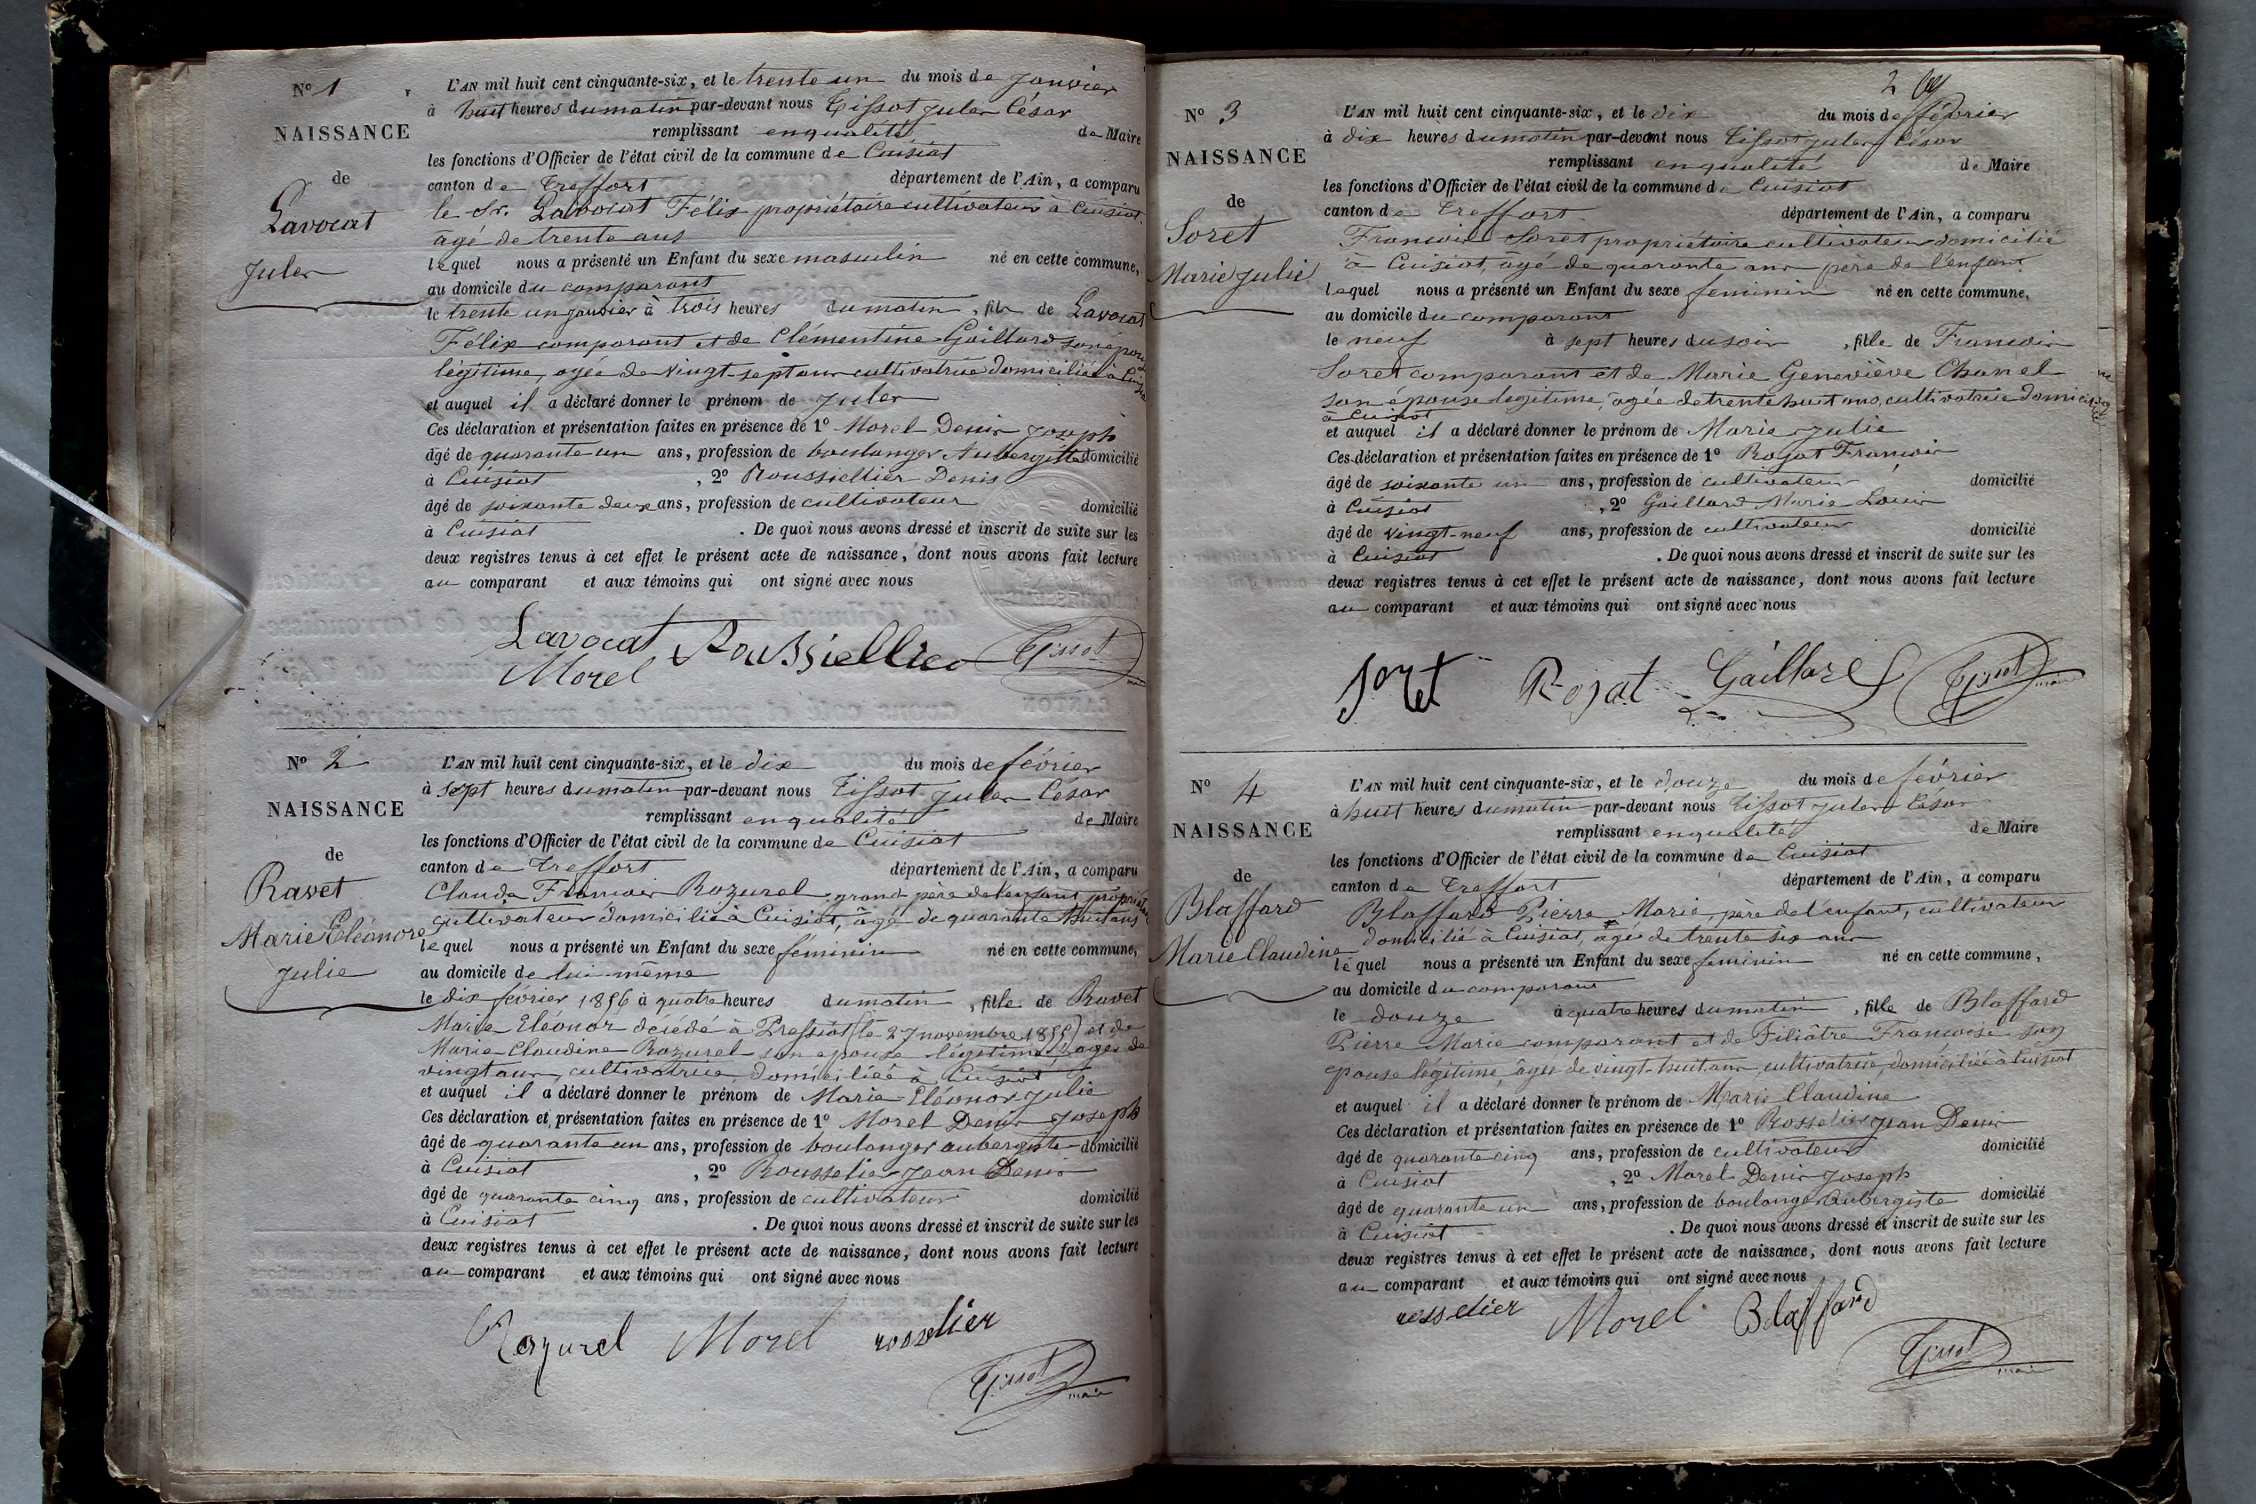 N° 1
NAISSANCE
de
Lavocat
Jules
L'AN mil huit cent cinquante-six, et le trente un du mois de Janvier
à huit heures du matin par-devant nous Tissot Jules César
remplissant en qualité de Maire
les fonctions d'Officier de l'état civil de la commune de Cuisiat
canton de Treffort département de l'Ain, a comparu
le Sr. Lavocat Félix propriétaire cultivateur à Cuisiat
âgé de trente ans
lequel nous a présenté un Enfant du sexe masculin né en cette commune,
au domicile du comparant
le trente un janvier à trois heures du matin, fils de Lavocat
Félix comparant et de Clémentine Gaillard son épouse
légitime, agée de vingt-sept ans cultivatrice domiciliée à Cuisiat
et auquel il a déclaré donner le prénom de Jules
Ces déclaration et présentation faites en présence de 1° Morel Denis Joseph
âgé de quarante un ans, profession de boulanger Aubergiste domicilié
à Cuisiat, 2° Roussiellier Denis
âgé de soixante deux ans, profession de cultivateur domicilié
à Cuisiat. De quoi nous avons dressé et inscrit de suite sur les
deux registres tenus à cet effet le présent acte de naissance, dont nous avons fait lecture
au comparant et aux témoins qui ont signé avec nous
Lavocat Roussiellier Tissot
Morel maire
N° 2
NAISSANCE
de
Ravet
Marie Eléonore
Julie
L'AN mil huit cent cinquante-six, et le dix du mois de février
à sept heures du matin par-devant nous Tissot Jules César
remplissant en qualité de Maire
les fonctions d'Officier de l'état civil de la commune de Cuisiat
canton de Treffort département de l'Ain, a comparu
Claude François Rozurel grand père de l'enfant propriétaire
cultivateur domicilié à Cuisiat, âgé de quarante huit ans
lequel nous a présenté un Enfant du sexe féminin né en cette commune,
au domicile de lui même
le dix février 1856 à quatre heures du matin, fille de Ravet
Marie Eléonor décédé à Pressiat (le 27 novembre 1855) et de
Marie Claudine Rozurel son epouse légitime, agée de
vingt ans, cultivatrice, domiciliée à Cuisiat
et auquel il a déclaré donner le prénom de Marie Eléonor Julie
Ces déclaration et présentation faites en présence de 1° Morel Denis Joseph
âgé de quarante un ans, profession de boulanger aubergiste domicilié
à Cuisiat, 2° Rousselier Jean Denis
âgé de quarante cinq ans, profession de cultivateur domicilié
à Cuisiat. De quoi nous avons dressé et inscrit de suite sur les
deux registres tenus à cet effet le présent acte de naissance, dont nous avons fait lecture
au comparant et aux témoins qui ont signé avec nous
Rozurel Morel rosselier
Tissot maire
2
N° 3
NAISSANCE
de
Soret
Marie Julie
L'AN mil huit cent cinquante-six, et le dix du mois de février
à dix heures du matin par-devant nous Tissot Jules César
remplissant en qualité de Maire
les fonctions d'Officier de l'état civil de la commune de Cuisiat
canton de Treffort département de l'Ain, a comparu
François Soret propriétaire cultivateur domicilié
à Cuisiat, âgé de quarante ans père de l'enfant
lequel nous a présenté un Enfant du sexe feminin né en cette commune,
au domicile du comparant
le neuf à sept heures du soir, fille de François
Soret comparant et de Marie Geneviève Chanel
son épouse légitime, agée de trente huit ans, cultivatrice domiciliée
à Cuisiat
et auquel il a déclaré donner le prénom de Marie Julie
Ces déclaration et présentation faites en présence de 1° Rojat François
âgé de soixante un ans, profession de cultivateur domicilié
à Cuisiat, 2° Gaillard Marie Louis
âgé de vingt-neuf ans, profession de cultivateur domicilié
à Cuisiat. De quoi nous avons dressé et inscrit de suite sur les
deux registres tenus à cet effet le présent acte de naissance, dont nous avons fait lecture
au comparant et aux témoins qui ont signé avec nous
Soret Rojat Gaillard Tissot maire
N° 4
NAISSANCE
de
Blaffard
Marie Claudine
L'AN mil huit cent cinquante-six, et le douze du mois de février
à huit heures du matin par-devant nous Tissot Jules César
remplissant en qualité de Maire
les fonctions d'Officier de l'état civil de la commune de Cuisiat
canton de Treffort département de l'Ain, a comparu
Blaffard Pierre Marie, père de l'enfant, cultivateur
domicilié à Cuisiat, âgé de trente six ans
lequel nous a présenté un Enfant du sexe feminin né en cette commune,
au domicile du comparant
le douze à quatre heures du matin, fille de Blaffard
Pierre Marie comparant et de Filiâtre Françoise son
epouse légitime, âgée de vingt-huit ans, cultivatrice, domiciliée à Cuisiat
et auquel il a déclaré donner le prénom de Marie Claudine
Ces déclaration et présentation faites en présence de 1° Rosselier Jean Denis
âgé de quarante cinq ans, profession de cultivateur domicilié
à Cuisiat, 2° Morel Denis Joseph
âgé de quarante un ans, profession de boulanger Aubergiste domicilié
à Cuisiat. De quoi nous avons dressé et inscrit de suite sur les
deux registres tenus à cet effet le présent acte de naissance, dont nous avons fait lecture
au comparant et aux témoins qui ont signé avec nous
rosselier Morel Blaffard
Tissot maire